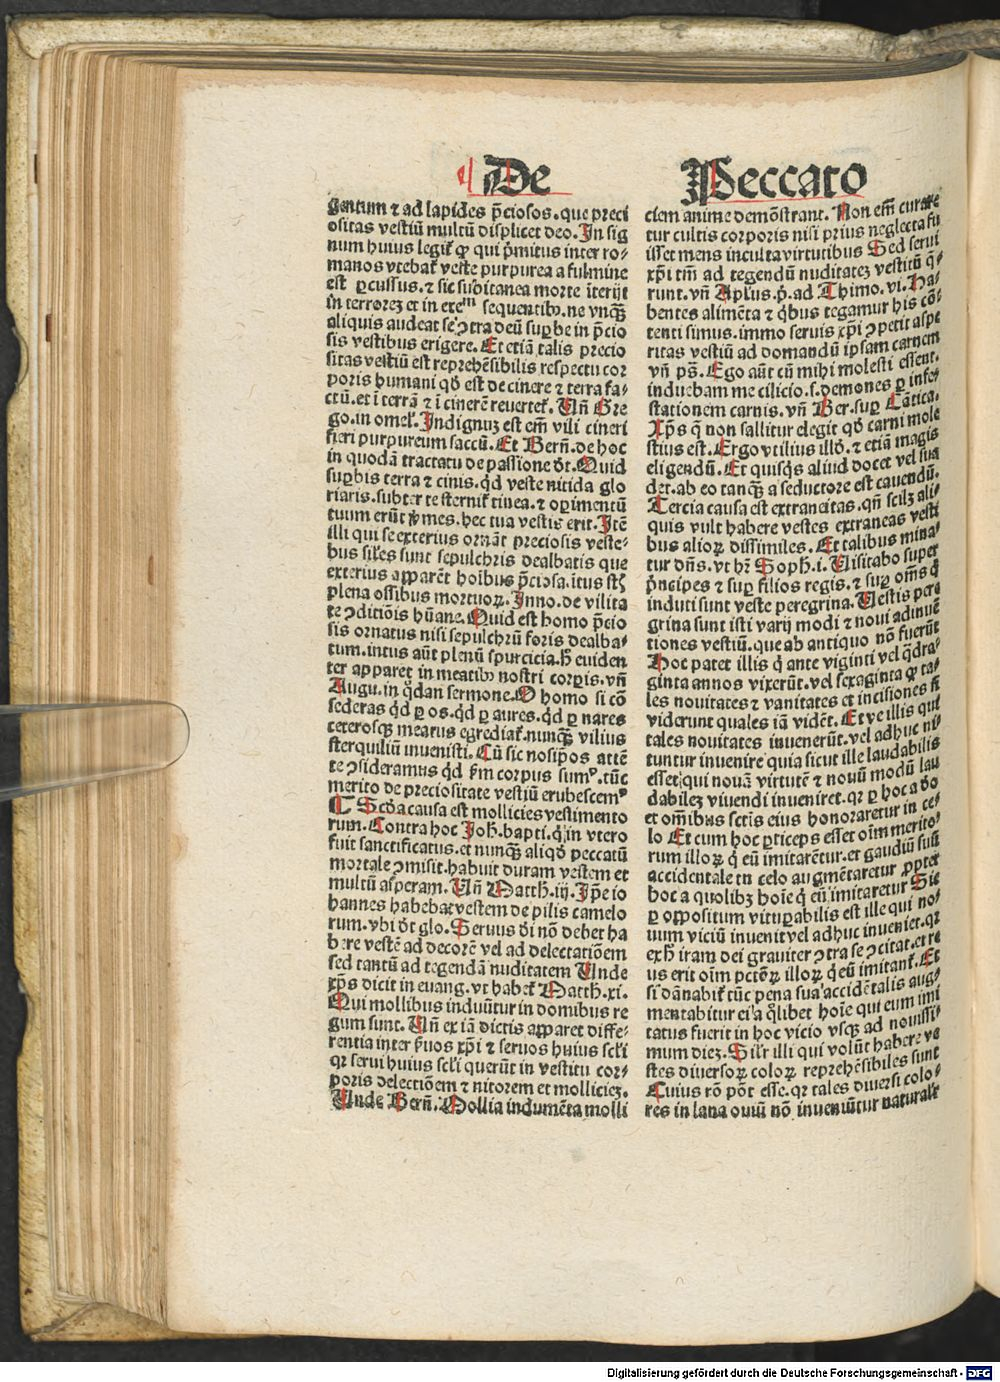 De Peccato
gentum ⁊ ad lapides p̄ciosos. que preci
ositas vestiū multū displicet deo. In sig
num huius legit᷑ ꝙ qui p̄mitus inter ro-
manos vtebat᷑ veste purpurea a fulmine
est ꝑcussus. ⁊ sic subitanea morte īterijt
in terrorez et in exem sequentibꝫ. ne vnqꝫ̄
aliquis audeat se ꝯtra deū suꝑbe in p̄cio
sis vestibus erigere. Et etiā talis precio
sitas vestiū est reprehēsibilis respectu cor
poris humani qd̄ est de cinere ⁊ terra fa-
ctū. et ī terrā ⁊ ī cinerē reuertet᷑. Vn̄ Gre
go. in omel᷑. Indignuꝫ est em̄ vili cineri
fieri purpureum saccū. Et Bern̄. de hoc
in quodā tractatu de passione dt̄. Quid
suꝑbis terra ⁊ cinis. qd̄ veste nitida glo
riaris. subter te sternit᷑ tinea. ⁊ oꝑimentū
tuum erūt v̄mes. hec tua vestis erit. Itē
illi qui se exterius ornāt preciosis veste-
bus sil̄es sunt sepulchris dealbatis que
exterius apparēt hoībus p̄ciosa. ītus sūt
plena ossibus mortuoꝝ. Inno. de vilita
te ꝯditiōis hūane. Quid est homo p̄cio
sis ornatus nisi sepulchrū foris dealba-
tum. intus aūt plenū spurcicia. h̄ euiden
ter apparet in meatibꝫ nostri corꝑis. vn̄
Augu. in qdā sermone. O homo si cō
sederas qd̄ ꝑ os. qd̄ ꝑ aures. qd̄ ꝑ nares
ceterosqꝫ meatus egrediat᷑. nunqꝫ̄ vilius
sterquiliū inuenisti. Cū sic nosip̄os attē
te ꝯsideramus qd̄ ẜm corpus sumꝰ. tūc
merito de preciositate vestiū erubescemꝰ
¶ Scd̄a causa est mollicies vestimento
rum. Contra hoc Joh̄. bapti. q̇ in vtero
fuit sanctificatus. et nunqꝫ̄ aliqd̄ peccatū
mortale ꝯmisit. habuit duram vestem et
multū asperam. Vn̄ Matth. iij. Ip̄e io
hannes habebat vestem de pilis camelo
rum. vbi dt̄ glo. Seruus dei nō debet ha
bere vestē ad decorē vel ad delectatiōem
sed tantū ad tegendā nuditatem Unde
xp̄s dicit in euang. vt habet᷑ Matth. xi.
Qui mollibus induūtur in domibus re
gum sunt. Vn̄ ex iā dictis apparet diffe-
rentia inter ẜuos xp̄i ⁊ seruos huius scl̄i
qꝛ serui huius scl̄i querūt in vestitu cor-
poris delectiōem ⁊ nitorem et molliciez.
Unde Bern̄. Mollia indumēta molli
ciem anime demōstrant. Non em̄ curare
tur cultis corporis nisi prius neglecta fu
isset mens inculta virtutibus Sed serui
xp̄i tm̄ ad tegendū nuditatez vestitū q̄-
runt. vn̄ Apl̄us. p̄. ad Thimo. vi. Ha-
bentes alimēta ⁊ q̇bus tegamur his cō-
tenti simus. immo seruis xp̄i ꝯpetit aspe
ritas vestiū ad domandū ip̄sam carnem
vn̄ ps̄. Ego aūt cū mihi molesti essent.
induebam me cilicio. s. demones ꝑ infe-
stationem carnis. vn̄ Ber. suꝑ Cātica.
Xp̄s q̄ non fallitur elegit qd̄ carni mole
stius est. Ergo vtilius illd̄. ⁊ etiā magis
eligendū. Et quisq̇s aliud docet vel sua
det. ab eo tanqꝫ̄ a seductore est cauendū.
Tercia causa est extraneitas. qn̄ scilꝫ ali-
quis vult habere vestes extraneas vesti
bus alioꝝ dissimiles. Et talibus mina-
tur dn̄s. vt hꝫ Soph̄. i. Uisitabo super
p̄ncipes ⁊ suꝑ filios regis. ⁊ suꝑ om̄s q̇
induti sunt veste peregrina. Uestis pere
grina sunt isti varij modi ⁊ noui adinuē
tiones vestiū. que ab antiquo nō fuerūt
Hoc patet illis q̇ ante viginti vel q̇dra-
ginta annos vixerūt. vel sexaginta ꝙ ta-
les nouitates ⁊ vanitates et incisiones n̄
viderunt quales iā vidēt. Et ve illis qui
tales nouitates inuenerūt. vel adhuc ni-
tuntur inuenire quia sicut ille laudabilis
esset qui nouā virtutē ⁊ nouū modū lau
dabilez viuendi inueniret. qꝛ ꝑ hoc a deo
et om̄ibus sctīs eius honoraretur in ce-
lo Et cum hoc ꝑticeps esset oīm merito-
rum illoꝝ q̇ eū imitarētur. et gaudiū suū
accidentale in celo augmētaretur ꝓpter
hoc a quolibꝫ hoīe q̇ eū imitaretur Sic
ꝑ oppositum vituꝑabilis est ille qui no-
uum viciū inuenit vel adhuc inueniet. qꝛ
ex h̄ iram dei grauiter ꝯtra se ꝯcitat. et re
us erit oīm pctōꝝ illoꝝ q̇ eū imitant᷑. Et
si dānabit᷑ tūc pena sua accidētalis aug-
mentabitur ei a q̄libet hoīe qui eum imi
tatus fuerit in hoc vicio vsqꝫ ad nouissi-
mum diez. Silr̄ illi qui volūt habere ve
stes diuersoꝝ coloꝝ reprehēsibiles sunt
Cuius rō pōt esse. qꝛ tales diuersi colo-
res in lana ouiū nō inueniūtur naturalr̄
Digitalisierung gefördert durch die Deutsche Forschungsgemeinschaft - DFG